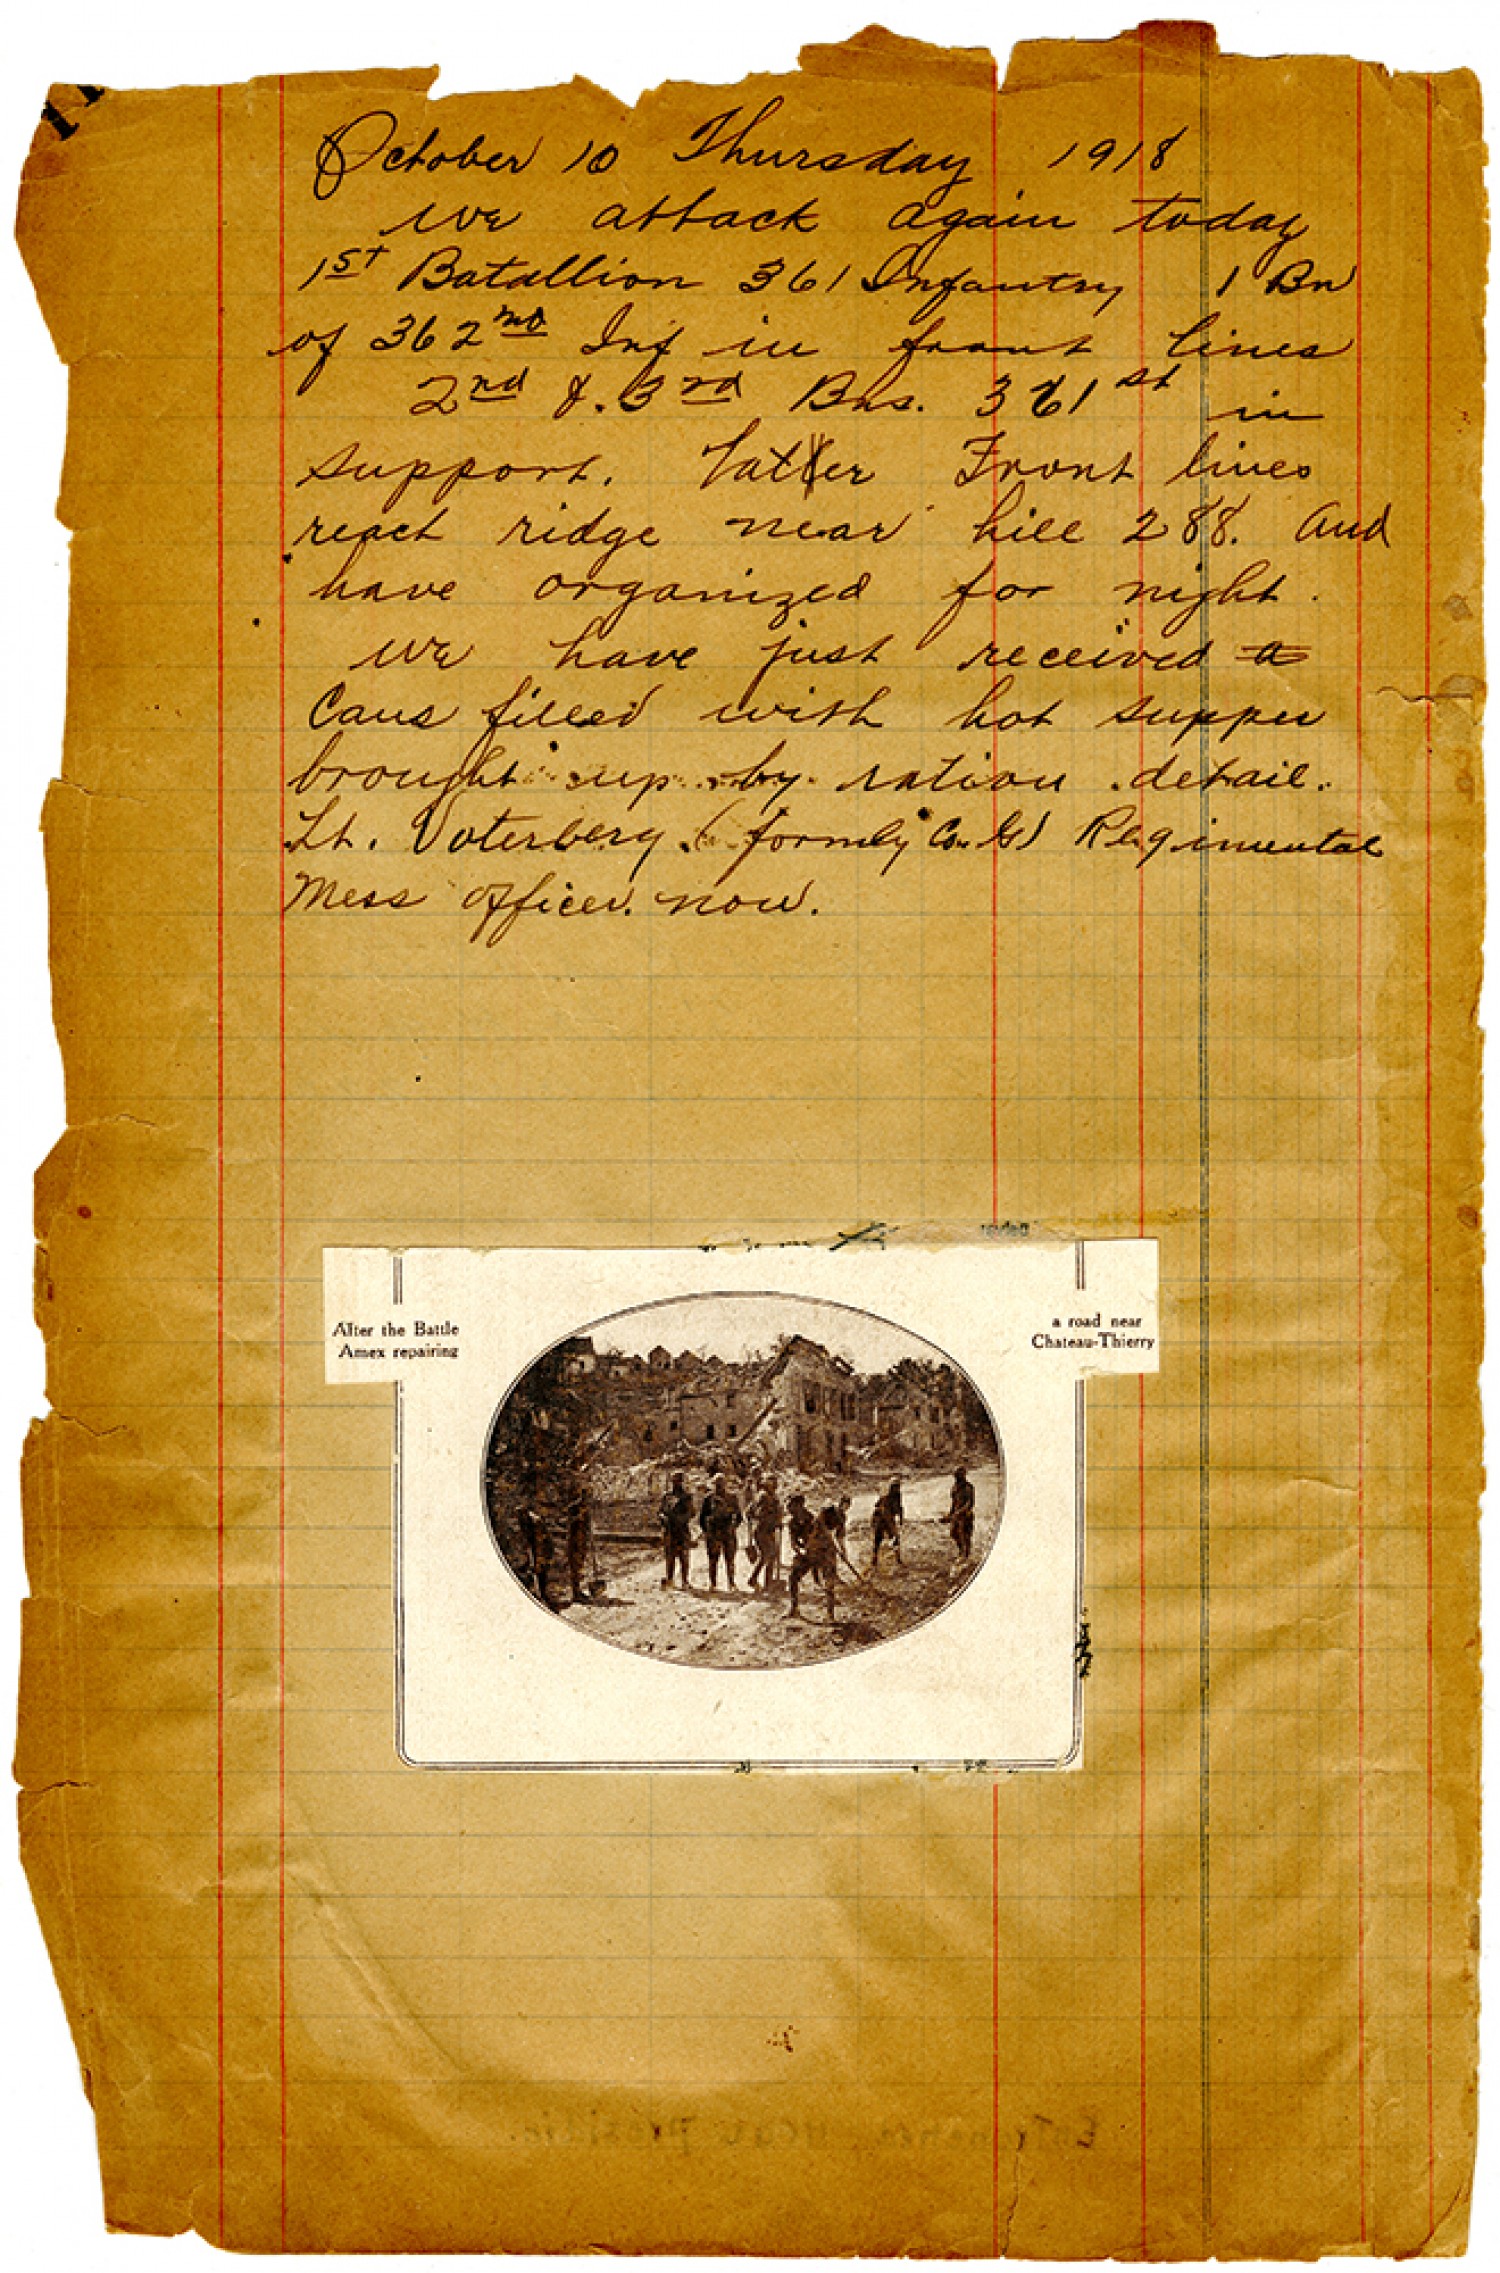 October 10 Thursday 1918
We attack again today
1st Batallion 361 Infantry 1 Bn
of 362nd Inf in front lines
2nd & 3rd Bns. 361st in
support. later Front lines
reach ridge near hill 288. And
have organized for night.
We have just received a
Cans filled with hot supper
brought up by ration detail.
Lt. Voterberg (formly Co. G) Regimental
Mess Officer. now.
After the Battle
Amex repairing
a road near
Chateau-Thierry